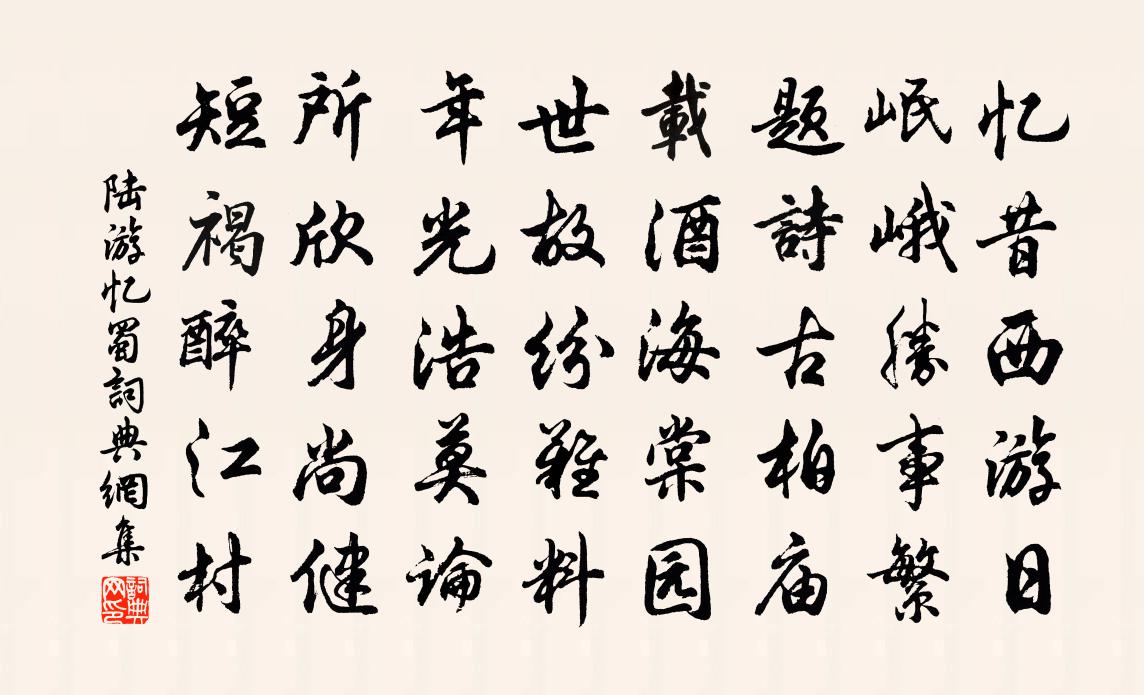 忆昔西游日
岷峨勝事繁
题詩古柏庙
載酒海棠园
世故纷難料
年光浩莫論
所欣身尚健
短褐醉江村
陆游忆蜀詞典網集
詞典网印